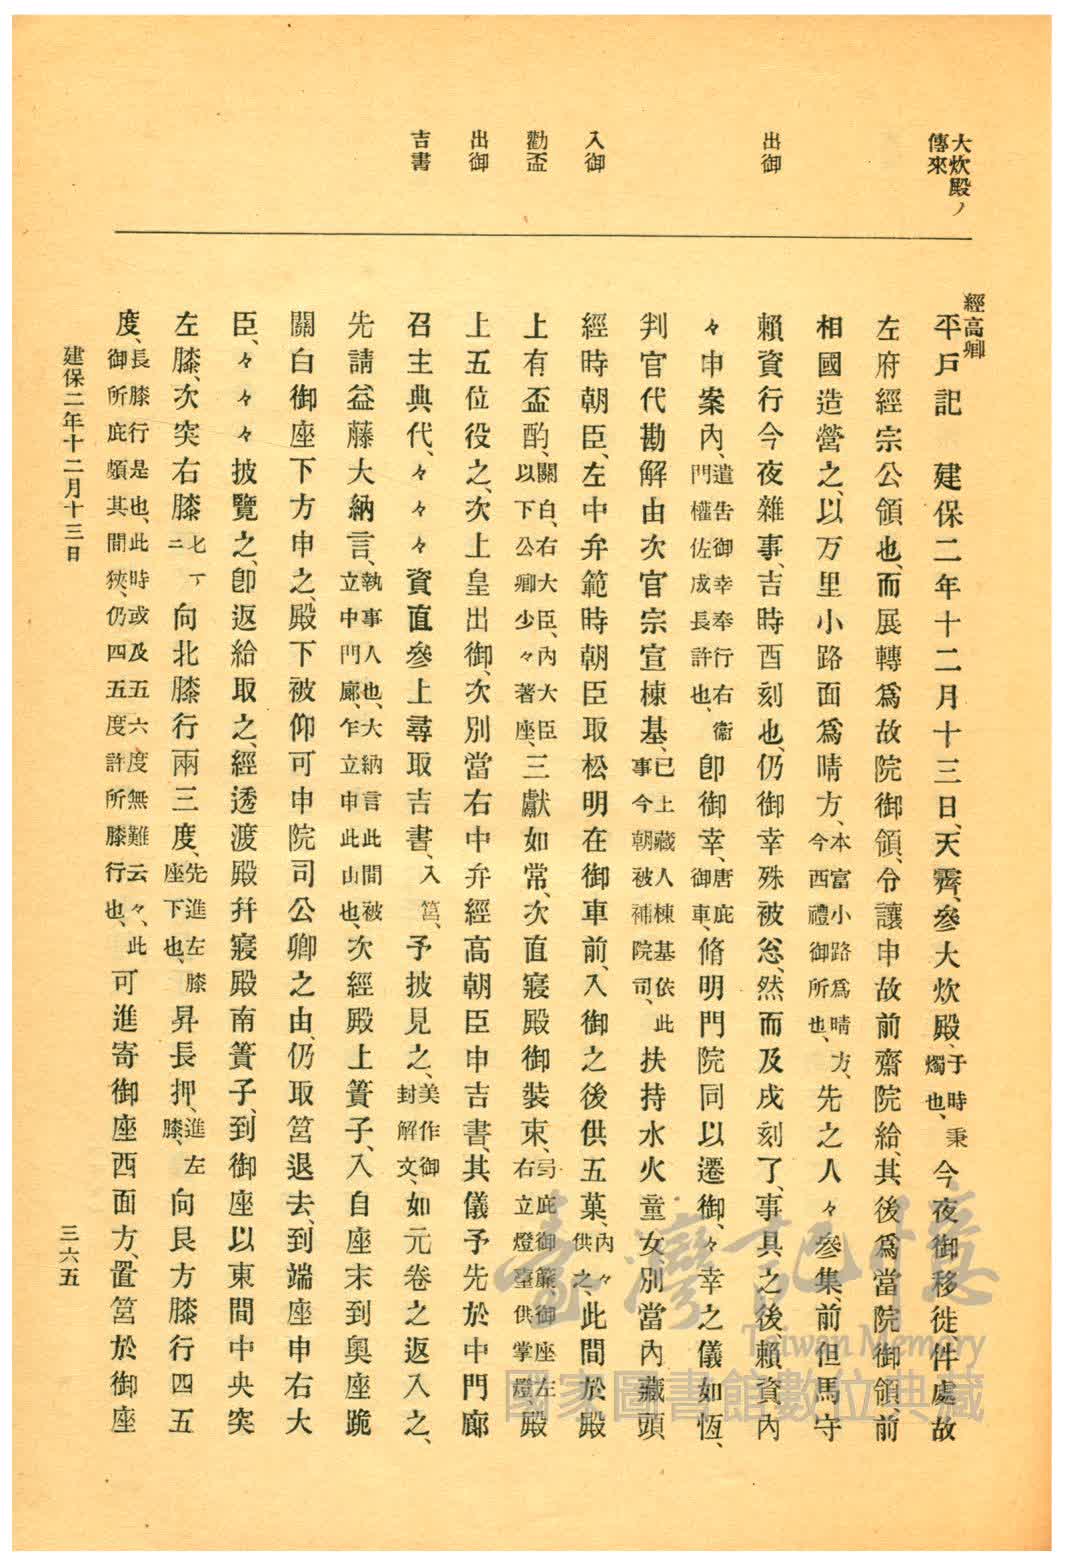 大炊殿ノ
傳來
出御
入御
勸盃
出御
吉書
經高卿
平戸記　建保二年十二月十三日、天霽、參大炊殿、于時秉燭也、今夜御移徙件處故
左府經宗公領也、而展轉爲故院御領、令讓申故前齋院給、其後爲當院御領、前
相國造營之、以万里小路面爲晴方、本富小路爲晴方、今西禮御所也、先之人々參集、前但馬守
賴資行今夜雜事、吉時酉刻也、仍御幸殊被忩、然而及戌刻了、事具之後、賴資內
々申案內、遣告御幸奉行右衞門權佐成長許也、卽御幸、唐庇御車、脩明門院同以遷御、々幸之儀如恆、
判官代勘解由次官宗宣棟基、已上藏人棟基依此事今朝被補院司、扶持水火童女、別當內藏頭、
經時朝臣、左中弁範時朝臣取松明在御車前、入御之後供五菓、內々供之、此間於殿
上有盃酌、關白、右大臣、內大臣以下公卿少々著座、三獻如常、次直寢殿御裝束、弖庇御簾御座左殿右立燈臺供掌燈
上五位役之、次上皇出御、次別當右中弁經高朝臣申吉書、其儀予先於中門廊
召主典代、々々々資直參上尋取吉書、入筥、予披見之、美作御封解文、如元卷之返入之、
先請益藤大納言、執事人也、大納言此間被立中門廊、乍立申此由也、次經殿上簀子、入自座末到奧座跪
關白御座下方申之、殿下被仰可申院司公卿之由、仍取筥退去、到端座申右大
臣、々々々披覽之、卽返給取之、經透渡殿幷寢殿南簀子、到御座以東間中央突
左膝、次突右膝乍二向北膝行兩三度、先進左膝座下也、昇長押、進左膝、向艮方膝行四五
度、長膝行是也、此時或及五六度無難云々、此御所庇頗其間狹、仍四五度許所膝行也、可進寄御座西面方、置筥於御座
建保二年十二月十三日
三六五
臺灣記憶
Taiwan Memory
國家圖書館數位典藏